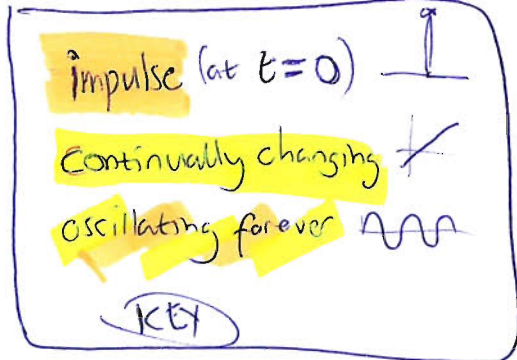 impulse (at t=0)
continually changing
oscillating forever
KEY